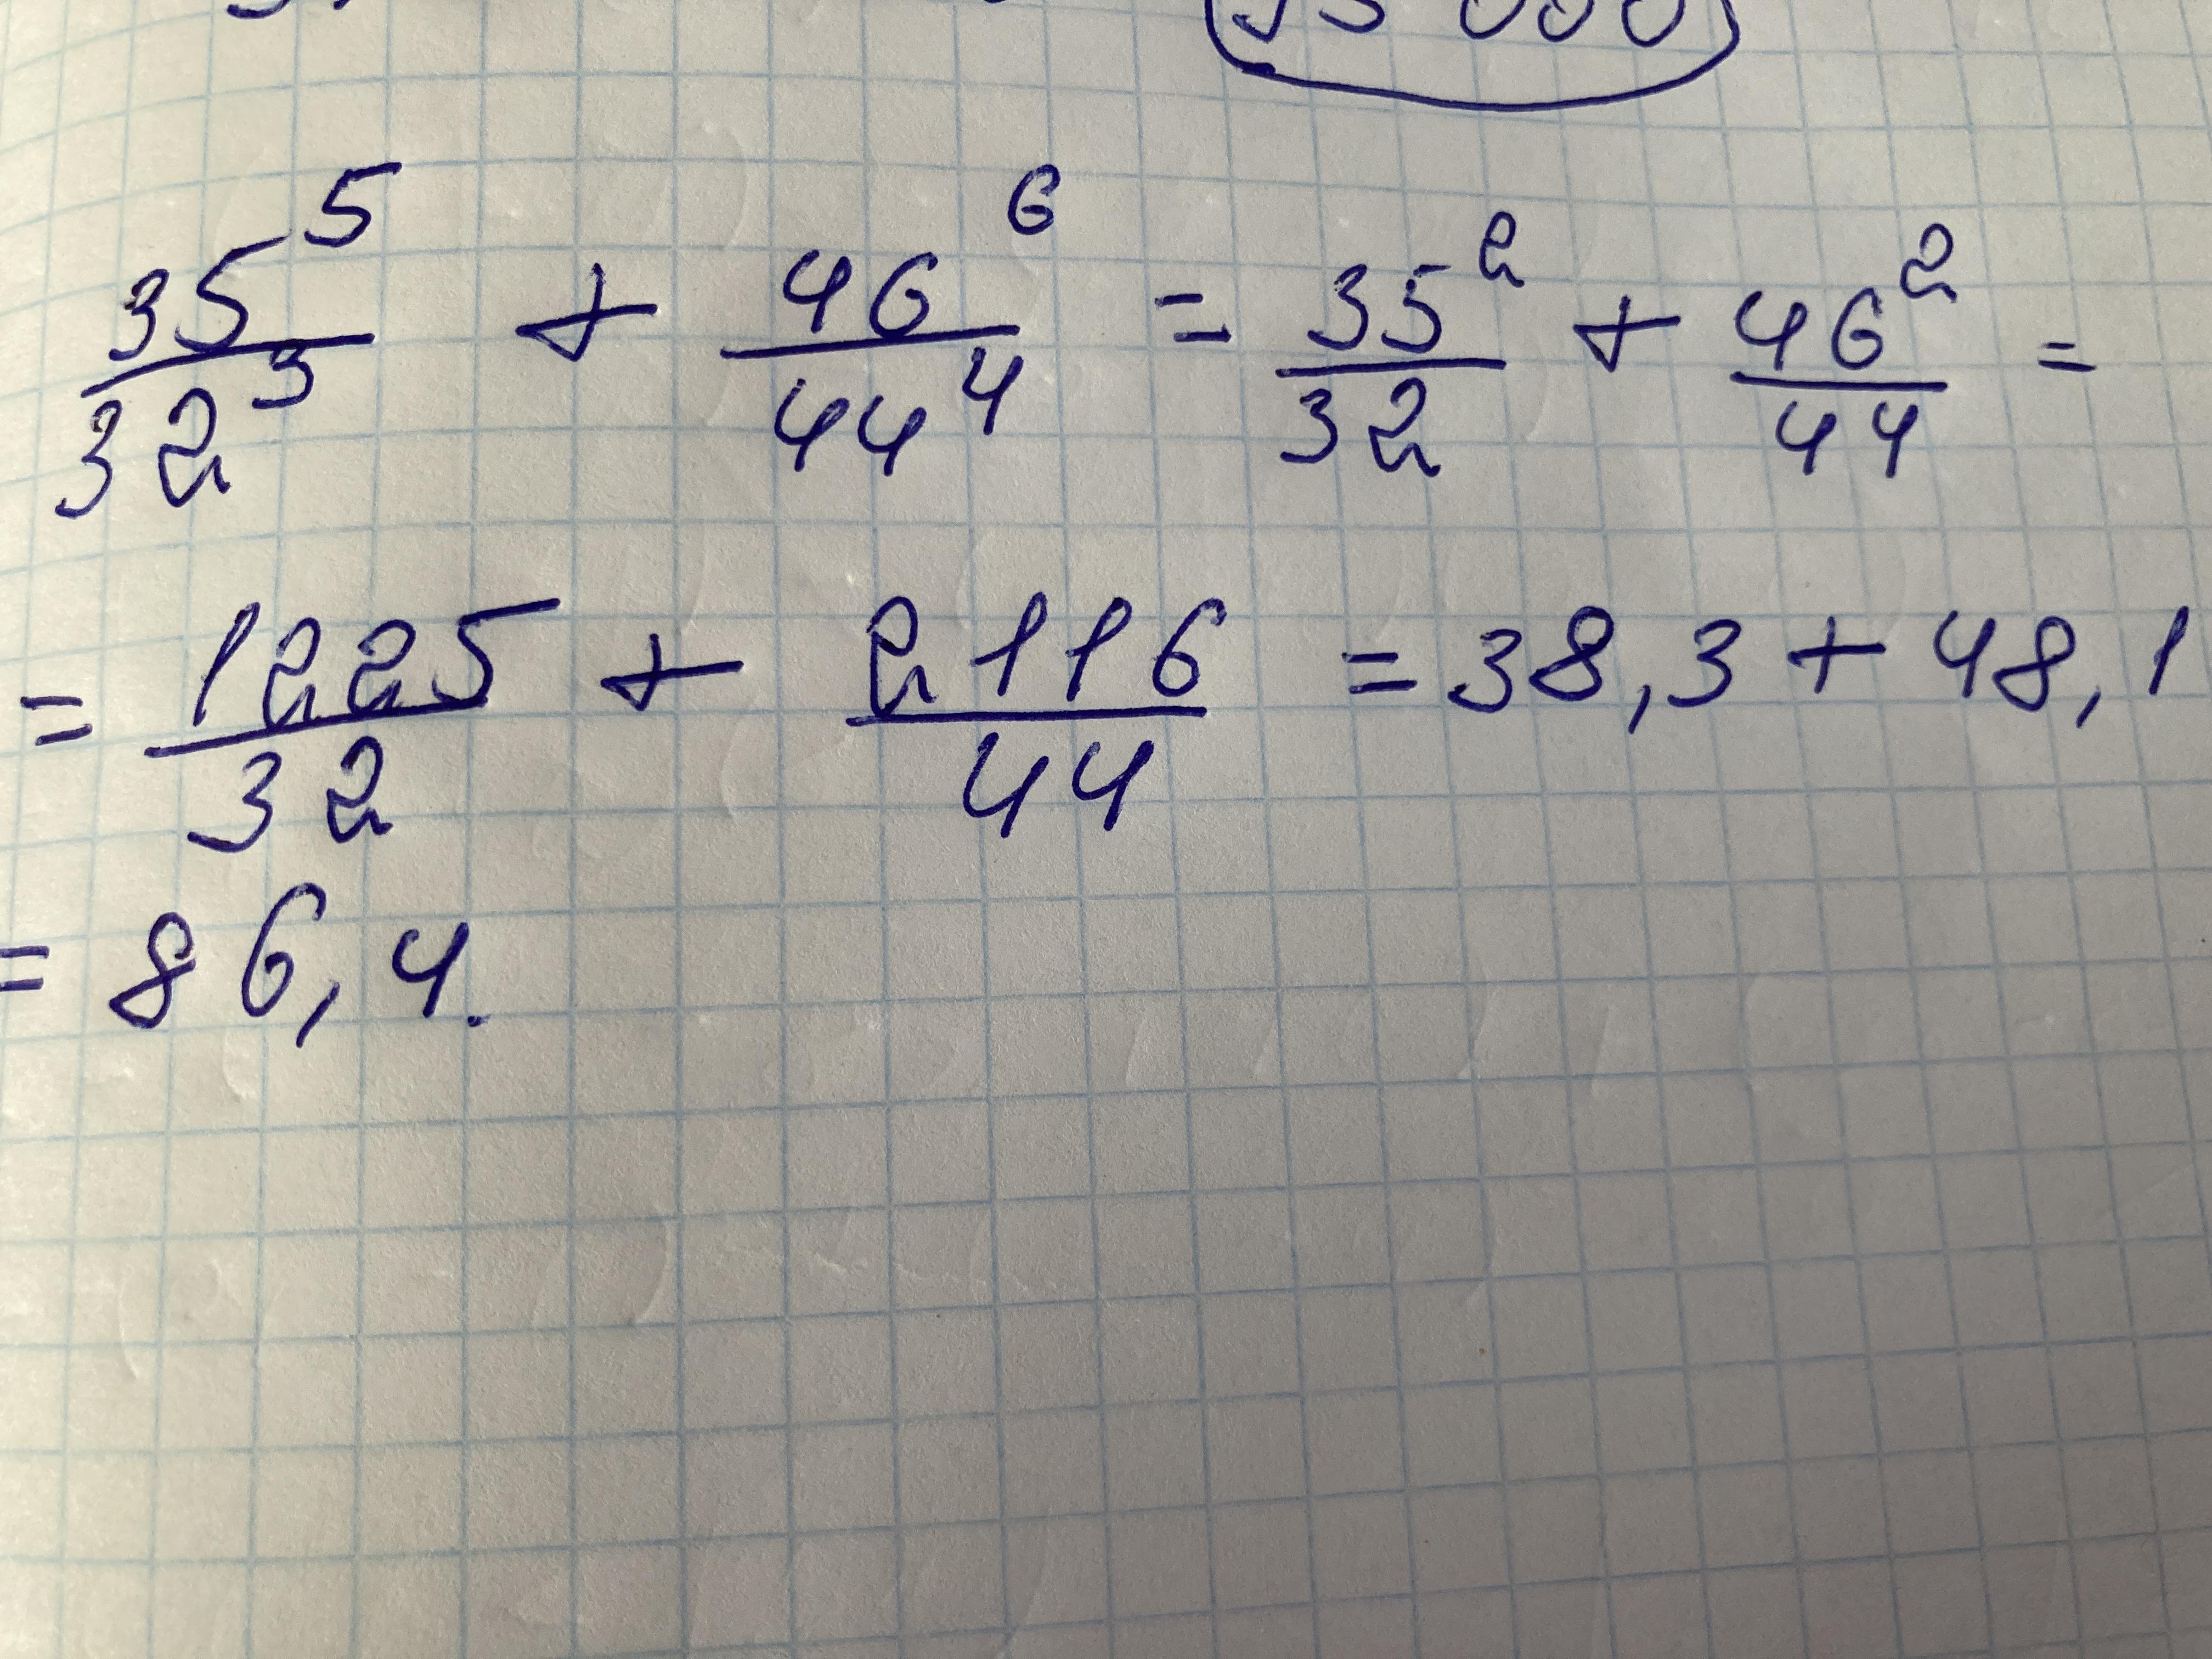 35⁵/32³ + 46⁶/44⁴ = 35²/32 + 46²/44 =
= 1225/32 + 2116/44 = 38,3 + 48,1
= 86,4.